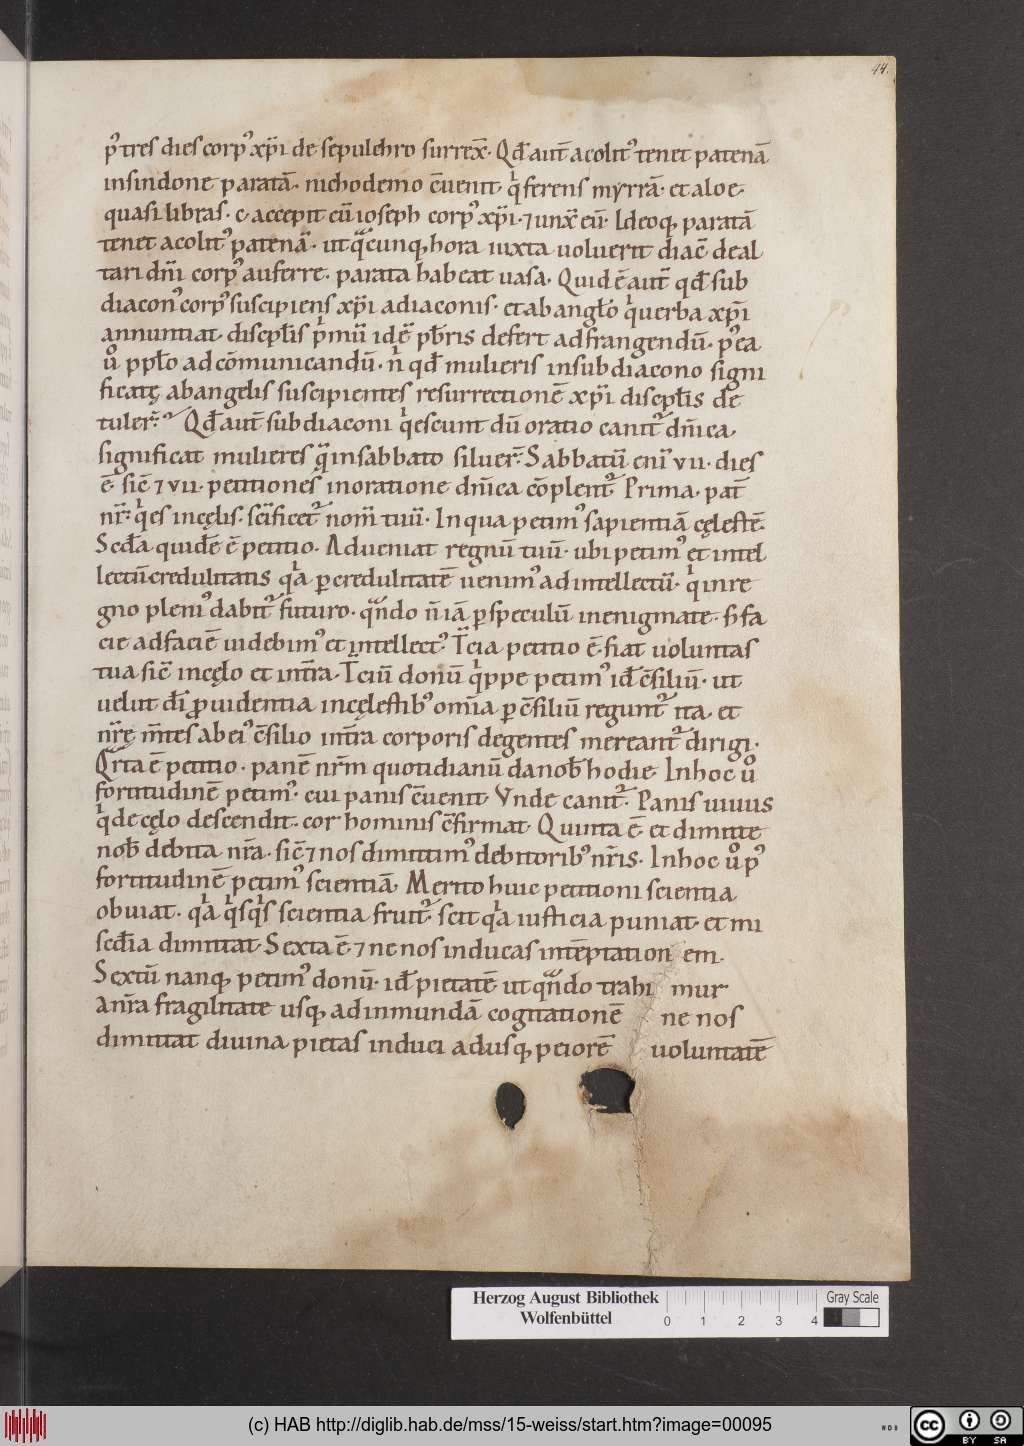 44.
p᾽ tres dies corp᾽ xp̄i de sepulchro surrex̄. Qđ aut̄ acolit᾽ tenet patenā
insindone paratā. nichodemo c̄uenit qͥ ferens myrrā. et aloe
quasi libras. c. accepit cū ioseph corp᾽ xp̄i. ⁊ unx̄ eū. Ideoq; paratā
tenet acolit᾽ patenā. ut qͣcunq; hora iuxta uoluerit diac̄ de al
tari dn̄i corp᾽ auferre. parata habeat uasa. Quid ē aut̄ qđ sub
diacon᾽ corp᾽ suscipiens xp̄i adiaconis. et ab angło qͥ uerba xp̄i
annuntiat. discipłis pͥmū idē pb̄ris defert ad frangendū. p᾽ ea
uͦ ppło ad cōmunicandū. nͥ qđ mulieris in subdiacono signi
ficatę ab angelis suscipientes resurrectionē xp̄i discipłis de
tuler̄. Qđ aut̄ subdiaconi qͥescunt dū oratio canit᾽ dn̄ica.
significat mulieres qͣ in sabbato siluer̄. Sabbatū eni᾽ vii. dies
ē. sic̄ ⁊ vii. petitiones in oratione dn̄ica cōplent᾽. Prima. pat̄
nr̄. qͥ es in cęlis. sc̄ificet᾽ nom̄ tuū. In qua petim᾽ sapientiā cęlestē.
Scđa quidē ē petitio. Adueniat regnū tuū. ubi petim᾽ et intel
lectū credulitatis qͥa p credulitatē uenim᾽ ad intellectū. qͥ in re
gno pleni᾽ dabit᾽ futuro. qͣndo n̄ iā p speculū in enigmate. s; fa
cie ad faciē uidebim᾽ et intellect᾽. T̄cia petitio ē. fiat uoluntas
tua sic̄ in cęlo et in t̄ra. T̄ciū donū qͥppe petim᾽ id̄ c̄siliū. ut
uelut dī p̱uidentia in cęlestib᾽ om̄ia p c̄siliū regunt᾽ ita. et
nr̄ę m̄tes ab ei᾽ c̄silio in t̄ra corporis degentes mereant᾽ dirigi.
Qͣrta ē petitio. panē nr̄m quotidianū da nob̄ hodie. In hoc uͦ
fortitudinē petim᾽. cui panis c̄uenit. Vnde canit᾽. Panis uiuus
qͥ de cęlo descendit. cor hominis c̄firmat. Quinta ē. et dimitte
nob̄ debita nr̄a. sic̄ ⁊ nos dimittim᾽ debitorib᾽ nr̄is. In hoc uͦ p᾽
fortitudinē petim᾽ scientiā. Merito huic petitioni scientia
obuiat. qͥa qͥsqͥs scientia fruit᾽. scit qͥa iusticia puniat. et mi
scđia dimittat. Sexta ē. ⁊ ne nos inducas in tēptation em.
Sextū nanq; petim᾽ donū. id̄ pietatē. ut qͣndo trahi mur
a nr̄a fragilitate usq; ad inmundā cogitationē ne nos
dimittat diuina pietas induci adusq; peiorē uoluntatē
Herzog August Bibliothek
Wolfenbüttel
0 1 2 3 4
Gray Scale
(c) HAB http://diglib.hab.de/mss/15-weiss/start.htm?image=00095
cc BY SA